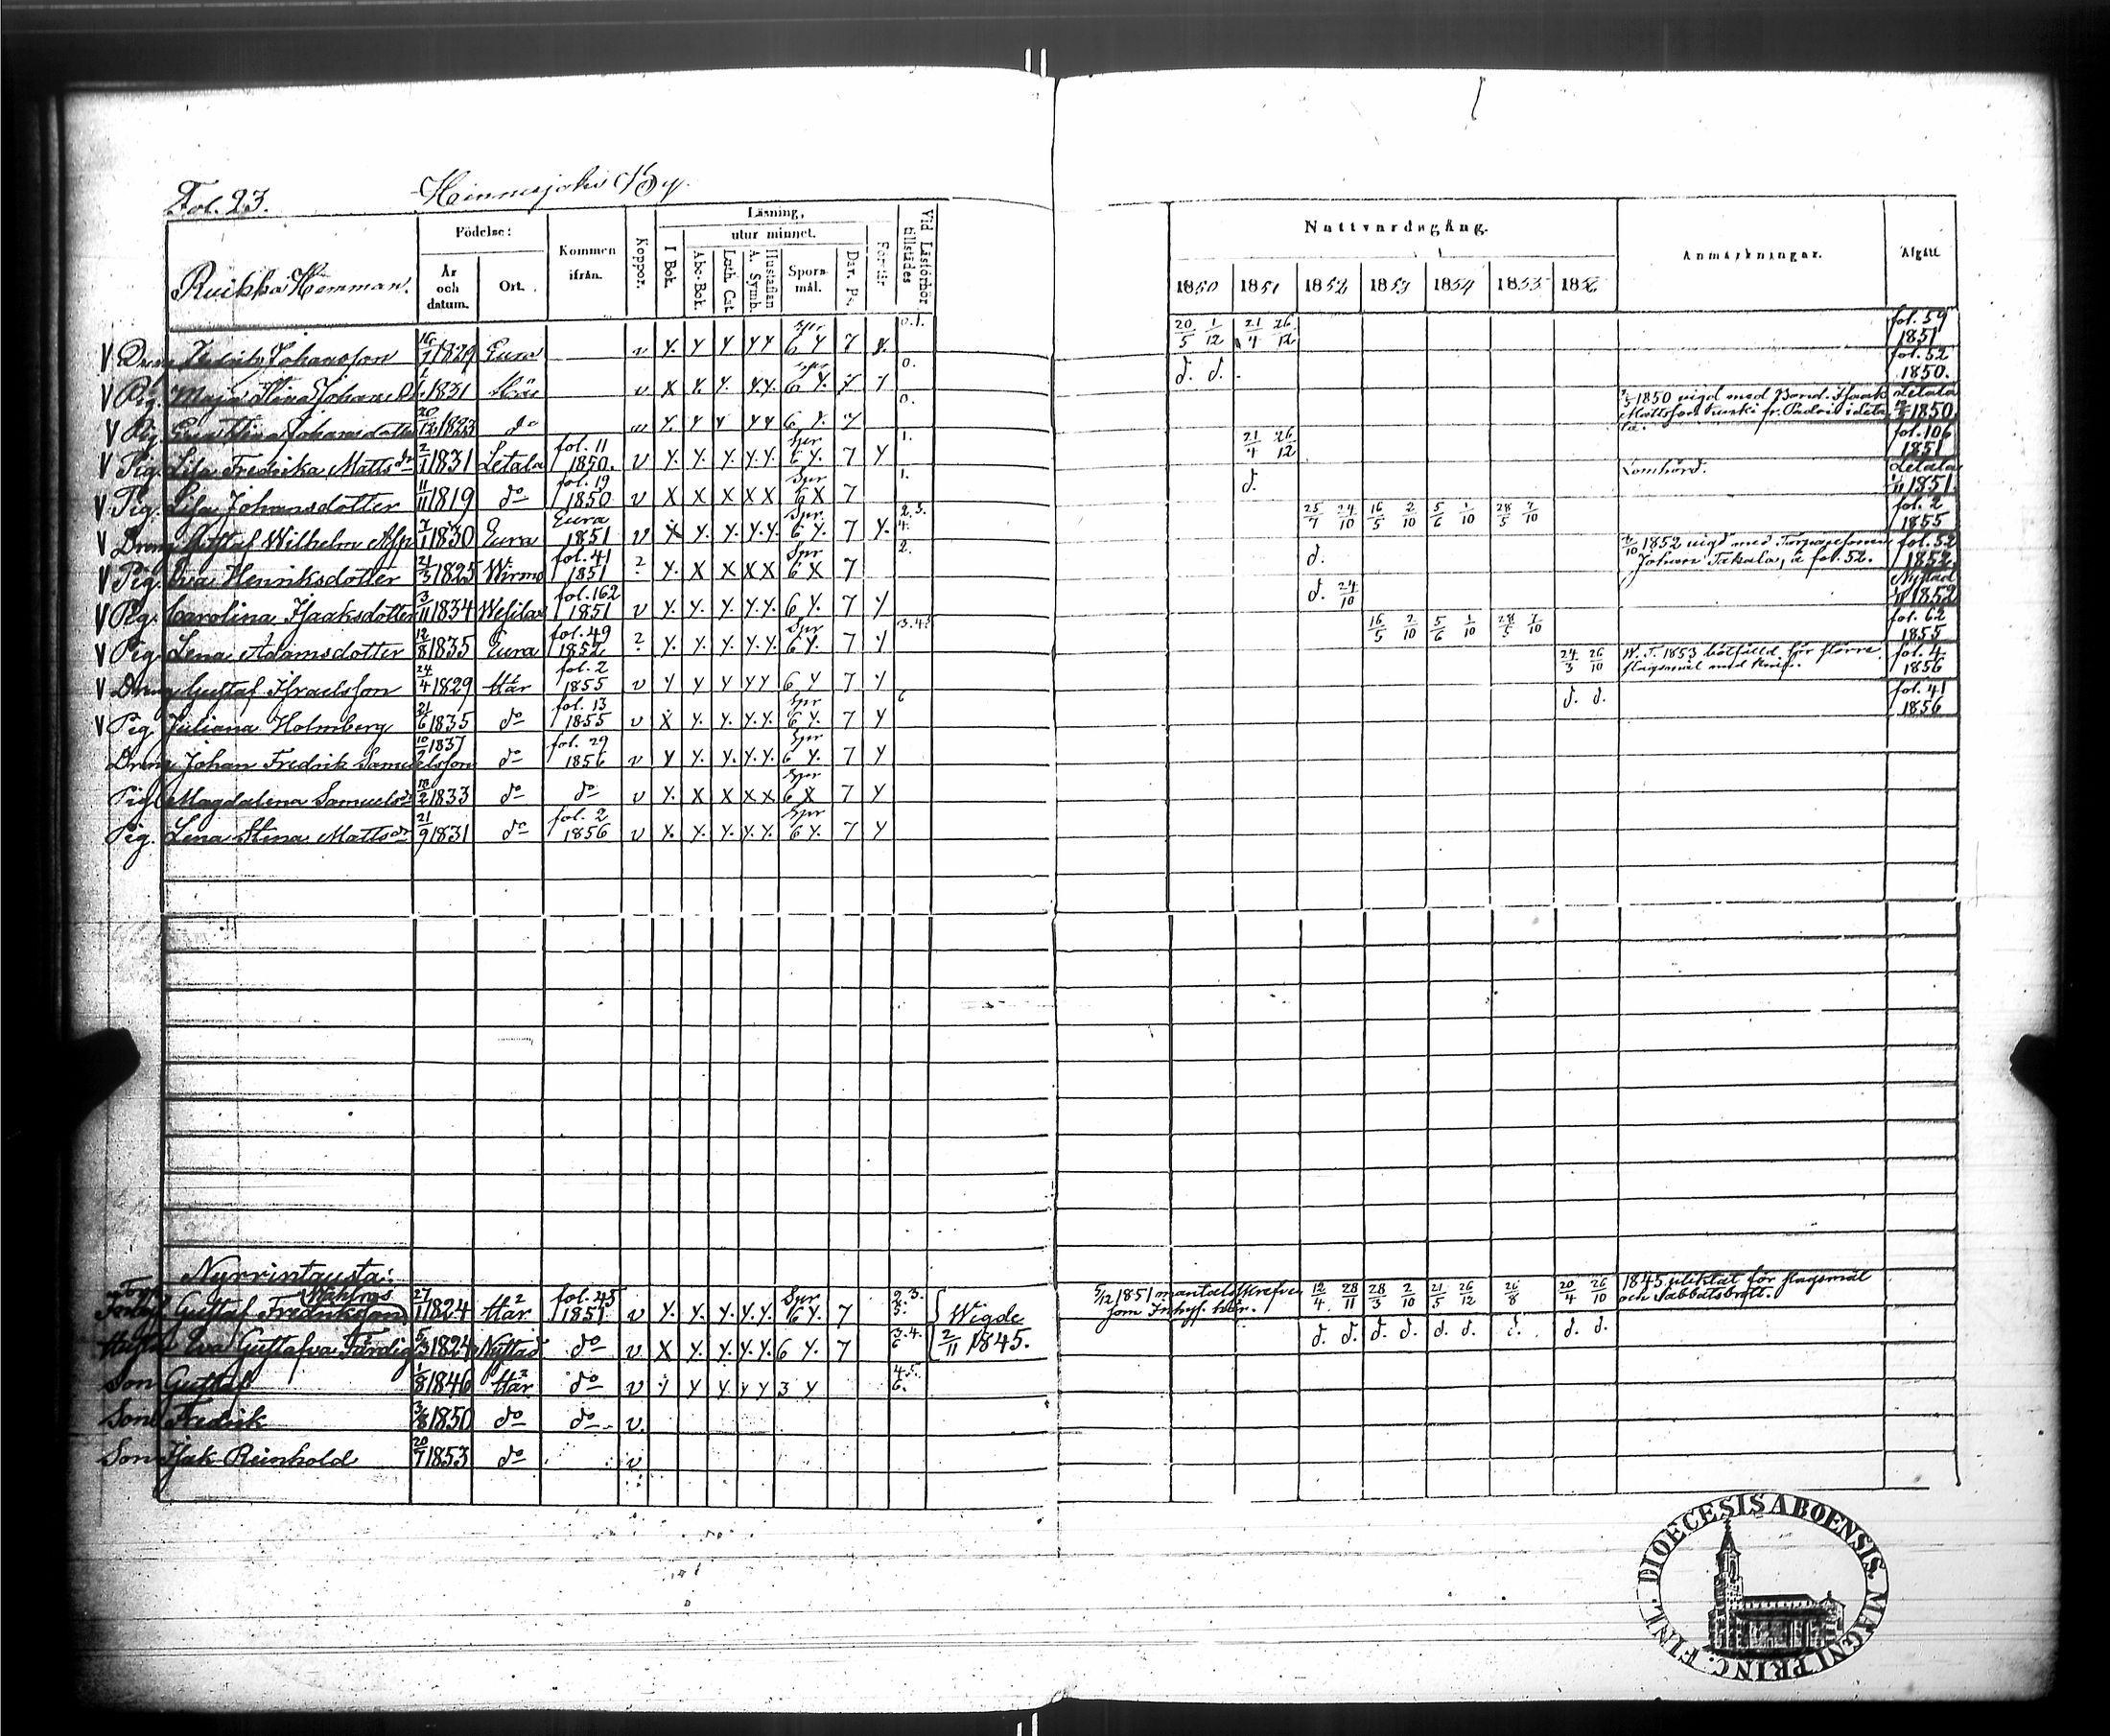 Fol. 23.
Hinnerjoki By.
Ruikka Hemman.
Födelse:
År och datum.
Ort.
Kommen ifrån.
Koppor.
Läsning,
utur minnet.
I Bok.
Abc-Bok.
Luth. Cat.
Hustaflan A. Symb.
Spors-mål.
Dav. Ps.
Förstår
Vid Läsförhör tillstädes
Nattvardsgång.
1850 1851 1852 1853 1854 1855 1856
Anmärkningar.
Afgått.
V Dreng Johansson 16/7 1829 Eura v Y. Y Y YY Spr 6 Y 7 Y. 0.1. 20/5 1/12 21/4 26/12 fol. 59 1851
V Pig. Maja Stina Johansd. 1831 v X Y. Y. Y.Y. Spr 6 Y. 7 Y 0. d. d. fol. 52 1850.
V Pig. Eva Stina Johansdotter 20/12 1823 do Y. Y Y YY 6 Y. 7 0. 1850 vigd med Bond. Isaak Mattsson fr. i Letala. Letala 1850
V Pig. Lisa Fredrika Matts dr 2/1 1831 Letala fol. 11 1850. v Y. Y. Y. Y.Y. Spr 6 Y. 7 Y 1. 21/4 26/12 fol. 106 1851
V Pig. Lisa Johansdotter 11/11 1819 do fol. 19 1850 v X X X X X Spr 6 X 7 1. d. Lomhörd. Letala 1/11 1851
V Dreng Gustaf Wilhelm 7/1 1830 Eura Eura 1851 v X Y. Y. Y.Y. Spr. 6 Y. 7 Y. 2.3. 4. 25/7 24/10 16/5 2/10 5/6 1/10 28/5 7/10 fol. 2 1855
V Pig. Eva Henriksdotter 21/3 1825 Wirmo fol. 41 1851 ? Y. X X X X Spr 6 X 7 2. d. 1852 vigd med Torparesonen Johan Takala, å fol. 52. fol. 52 1852.
V Pig. Carolina Isaaksdotter 3/11 1834 fol. 162 1851 v Y. Y. Y. Y.Y. 6 Y. 7 Y d. 24/10 Nystad 1/11 1852
V Pig. Lena Adamsdotter 12/8 1835 Eura fol. 49 1852 ? Y. Y. Y. Y.Y. Spr 6 Y. 7 Y 3.4. 16/5 2/10 5/6 1/10 28/5 7/10 fol. 62 1855
V Dreng Gustaf Israelsson 24/4 1829 Här fol. 2 1855 v Y Y Y YY 6 Y 7 Y 24/3 26/10 W. T. 1853 bötfälld för större slagsmål med knif. fol. 4 1856
V Pig. Juliana Holmberg 21/6 1835 do fol. 13 1855 v X Y. Y. Y.Y. Spr 6 Y. 7 Y 6 d. d. fol. 41 1856
Dreng Johan Fredrik Samuelsson 10/9 1837 do fol. 29 1856 v Y Y. Y. Y.Y. Spr 6 Y. 7 Y
Pig. Magdalena Samuelsdr 18/2 1833 do do v Y. X X X X Spr 6 X 7 Y
Pig. Lena Stina Matts dr 21/9 1831 do fol. 2 1856 v Y. Y. Y. Y.Y. Spr 6 Y. 7 Y
Nyrrintausta:
Gustaf Fredriksson Ståhlros 27/1 1824 Här fol. 45 1851 v Y. Y. Y. Y.Y. Spr 6 Y. 7 2.3. 5. Wigde 5/12 1851 mantalsskrefven som Inhys. här. 12/4 28/11 28/3 2/10 21/5 26/12 26/8 20/4 26/10 1845 pliktat för slagsmål och Sabbatsbrott.
Hustru Eva Gustafva Färdig 5/3 1824 Nystad do v X Y. Y. Y.Y. 6 Y. 7 3.4. 6 2/11 1845. d. d. d. d. d. d. d. d. d.
Son Gustaf 1/8 1846 Här do v Y Y Y. Y Y 3 Y 4.5. 6.
Son Fredrik 3/8 1850 do do v.
Son Isak Reinhold 20/7 1853 do v
DIOECESIS ABOENSIS. MAGNI PRINC. FINL.